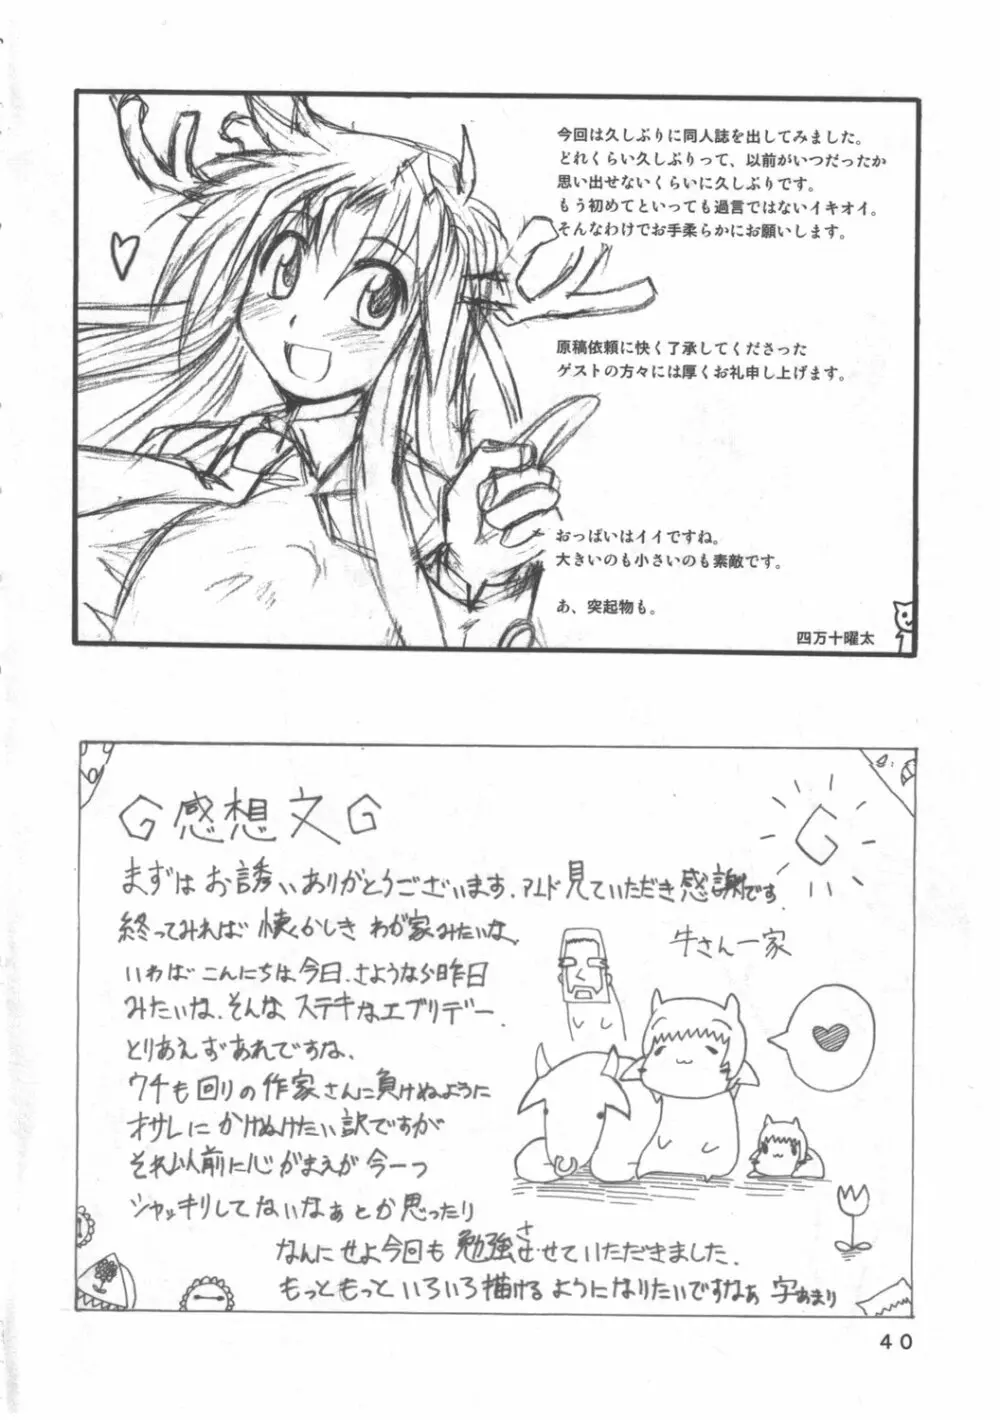 今回は久しぶりに同人誌を出してみました。
どれくらい久しぶりって、以前がいつだったか
思い出せないくらいに久しぶりです。
もう初めてといっても過言ではないイキオイ。
そんなわけでお手柔らかにお願いします。
原稿依頼に快く了承してくださった
ゲストの方々には厚くお礼申し上げます。
おっぱいはイイですね。
大きいのも小さいのも素敵です。
あ、突起物も。
四万十曜太
G感想文G
G
まずはお誘いありがとうございます。アンド見ていただき感謝です
終ってみれば懐かしき わが家みたいな、
牛さん一家
いわばこんにちは今日、さようなら昨日
みたいな、そんなステキなエブリデー。
とりあえずあれですな、
ウチも回りの作家さんに負けぬように
オサレにかけぬけたい訳ですが
それ以前に心がまえが今一つ
シャッキリしてないなぁとか思ったり
なんにせよ今回も勉強させていただきました。
もっともっといろいろ描けるようになりたいですなぁ 字あまり
40